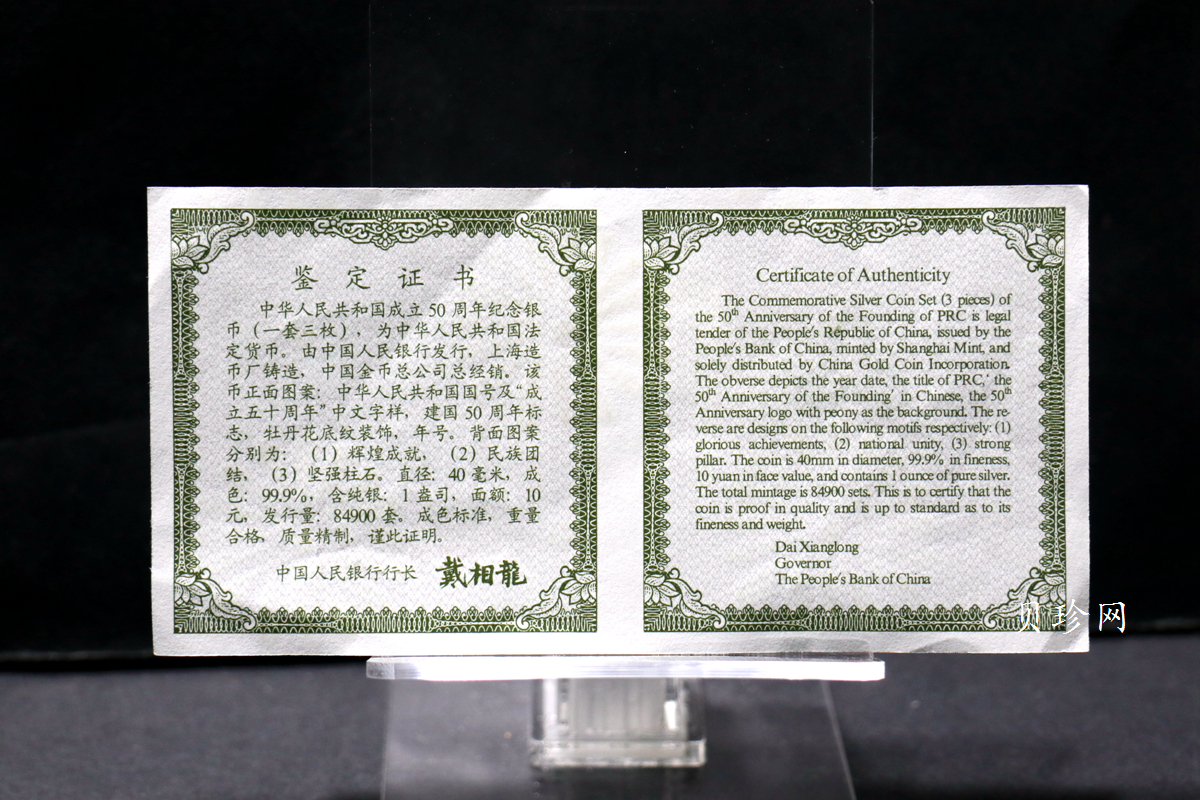 鉴定证书
中华人民共和国成立50周年纪念银
币（一套三枚），为中华人民共和国法
定货币。由中国人民银行发行，上海造
币厂铸造，中国金币总公司总经销。该
币正面图案：中华人民共和国国号及“成
立五十周年”中文字样，建国50周年标
志，牡丹花底纹装饰，年号。背面图案
分别为：（1）辉煌成就，（2）民族团
结，（3）坚强柱石。直径：40毫米，成
色：99.9%，含纯银：1盎司，面额：10
元，发行量：84900套。成色标准，重量
合格，质量精制，谨此证明。
中国人民银行行长 戴相龍
Certificate of Authenticity
The Commemorative Silver Coin Set (3 pieces) of
the 50th Anniversary of the Founding of PRC is legal
tender of the People's Republic of China, issued by the
People's Bank of China, minted by Shanghai Mint, and
solely distributed by China Gold Coin Incorporation.
The obverse depicts the year date, the title of PRC,' the
50th Anniversary of the Founding' in Chinese, the 50th
Anniversary logo with peony as the background. The re-
verse are designs on the following motifs respectively: (1)
glorious achievements, (2) national unity, (3) strong
pillar. The coin is 40mm in diameter, 99.9% in fineness,
10 yuan in face value, and contains 1 ounce of pure silver.
The total mintage is 84900 sets. This is to certify that the
coin is proof in quality and is up to standard as to its
fineness and weight.
Dai Xianglong
Governor
The People's Bank of China
贝珍网